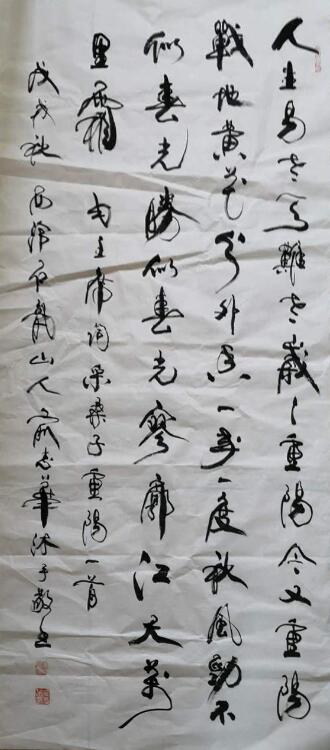 人生易老天難老歲々重陽今又重陽
戰地黄花分外香一年一度秋風勁不
似春光勝似春光寥廓江天萬
里霜 毛主席詞采桑子重陽一首
戊戌秋西津龍山人俞志華沐手敬書